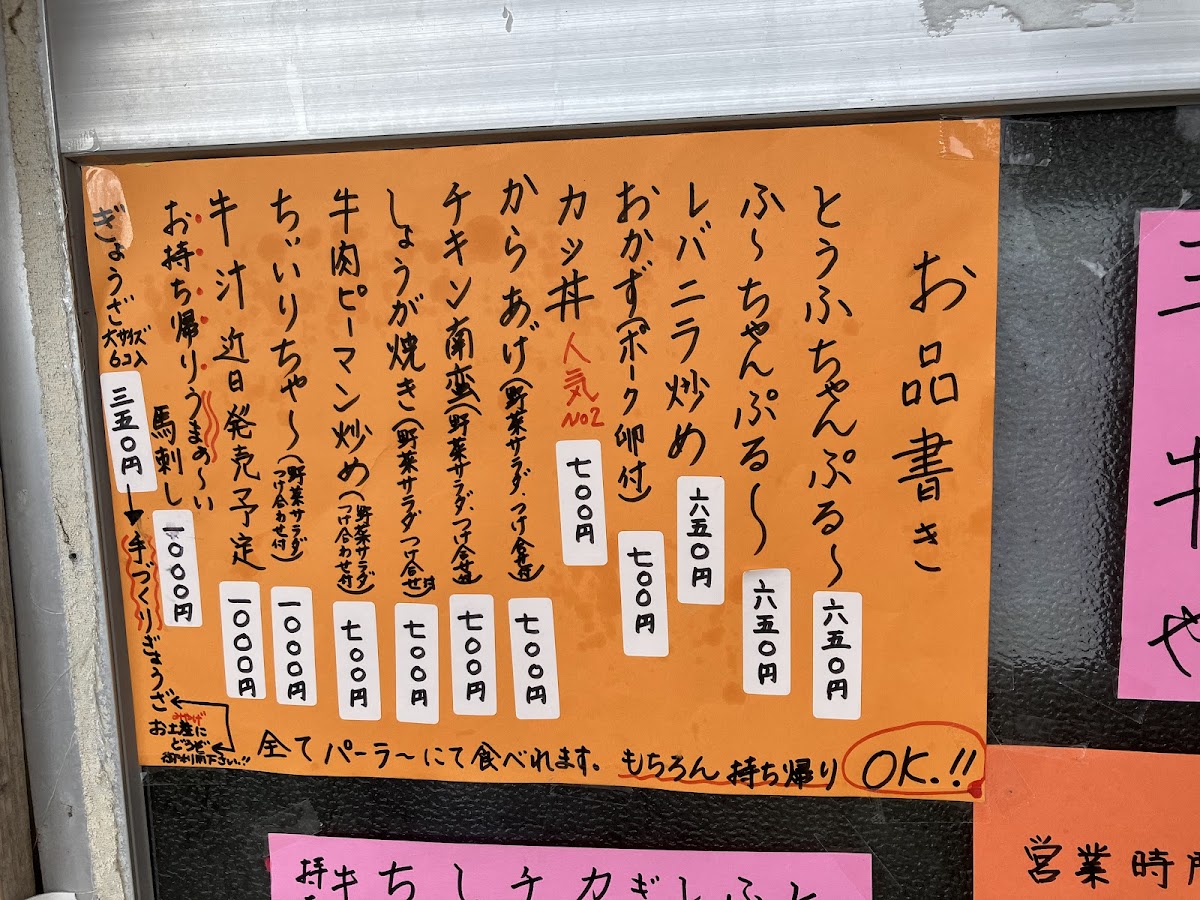 お品書き
とうふちゃんぷる〜 六五〇円
ふ〜ちゃんぷる〜 六五〇円
レバニラ炒め 六五〇円
おかず(ポーク卵付) 七〇〇円
カツ丼 人気No2 七〇〇円
からあげ(野菜サラダ、つけ合せ付) 七〇〇円
チキン南蛮(野菜サラダ、つけ合せ付) 七〇〇円
しょうが焼き(野菜サラダつけ合せ付) 七〇〇円
牛肉ピーマン炒め(野菜サラダつけ合わせ付) 七〇〇円
ちぃいりちゃ〜(野菜サラダつけ合わせ付) 一〇〇〇円
牛汁近日発売予定 一〇〇〇円
お持ち帰りうまぁ〜い
馬刺し 一〇〇〇円
ぎょうざ大サイズ6コ入 三五〇円
手づくりぎょうざ
みやげ
お土産に
どうぞ
全てパーラーにて食べれます。もちろん持ち帰りOK.!!
営業時